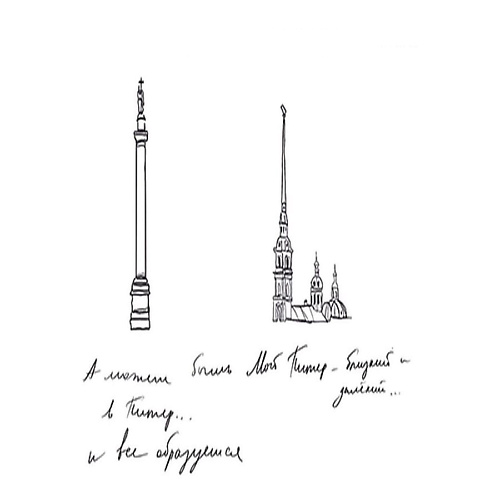 А может быть
в Питер...
и все образуется
Мой Питер - близкий и
далёкий...